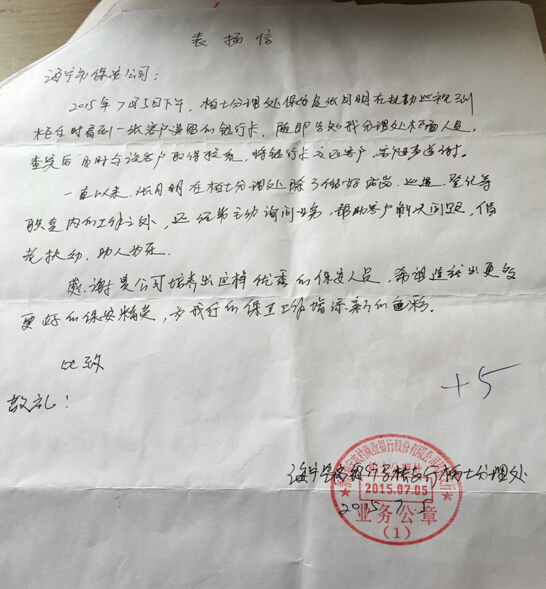 表扬信
海宁市保安公司：
2015年7月5日下午，柏士分理处保安员张月明在机动巡视到
柜台时看到一张客户遗留的银行卡，随即告知我分理处柜面人员，
查实后及时与该客户取得联系，将银行卡交还客户，客户连声道谢。
一直以来，张月明在柏士分理处除了做好站岗、巡逻、登记等
职责内的工作之外，还经常主动询问业务，帮助客户解决问题，借
老扶幼，助人为乐。
感谢贵公司培养出这样优秀的保安人员，希望连续出更多
更好的保安精英，为我行的保卫工作增添新的色彩。
此致
敬礼！
+5
海宁农商银行 柏士分理处
2015.7.5
村商业银行股份有限公司
2015.07.05
业务公章
(1)